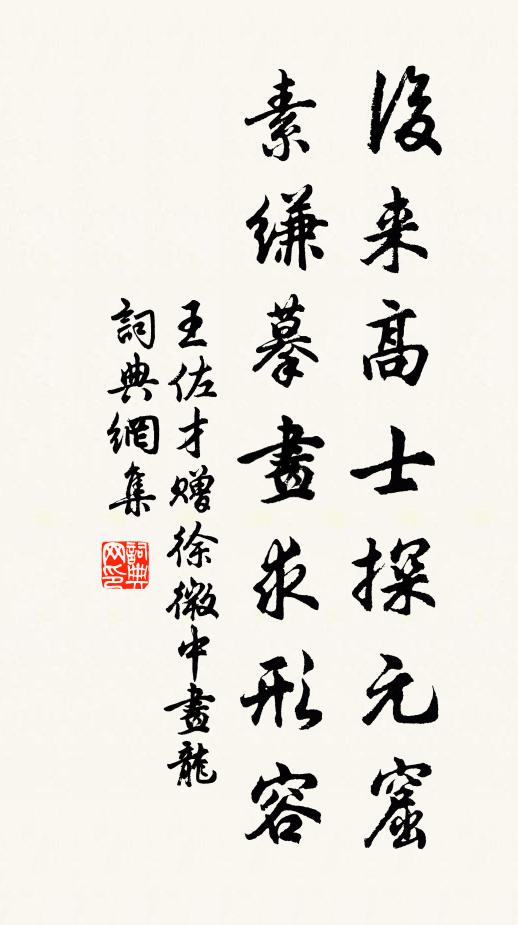 後来高士探元窟
素縑摹畫求形容
王佐才赠徐微中畫龍
詞典網集
詞典网印